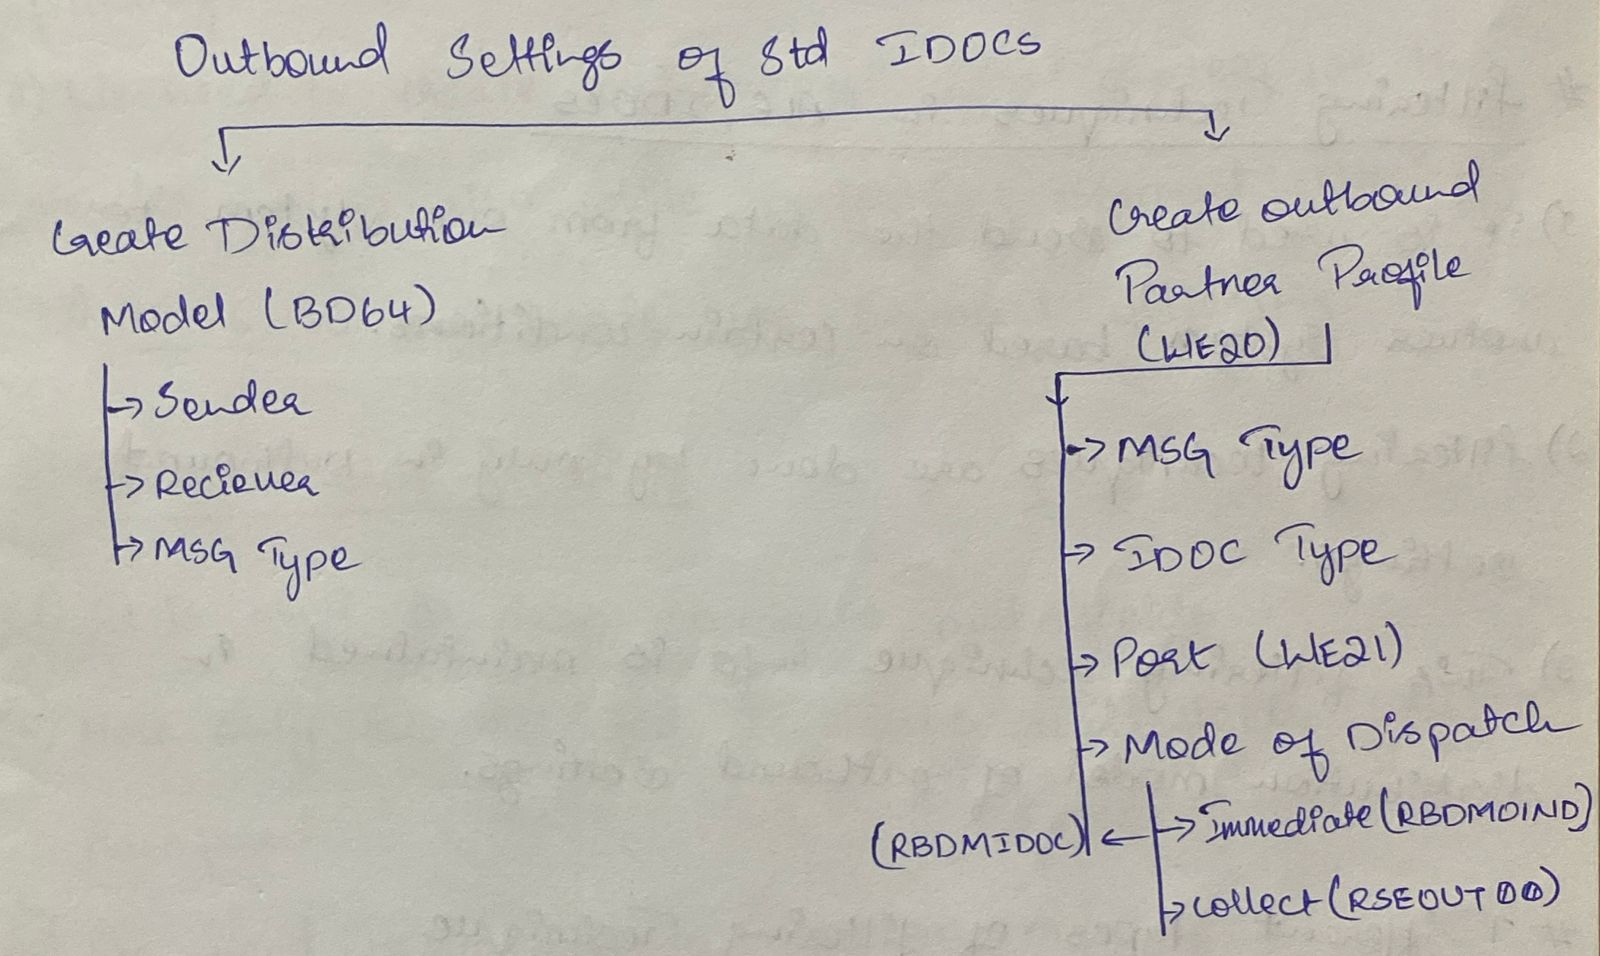 Outbound Settings of Std IDOCs
Create Distribution
Model (BD64)
Sender
Reciever
MSG Type
Create outbound
Partner Profile
(WE20)
MSG Type
IDOC Type
Port (WE21)
Mode of Dispatch
Immediate (RBDMOIND)
(RBDMIDOC)
collect (RSEOUT00)